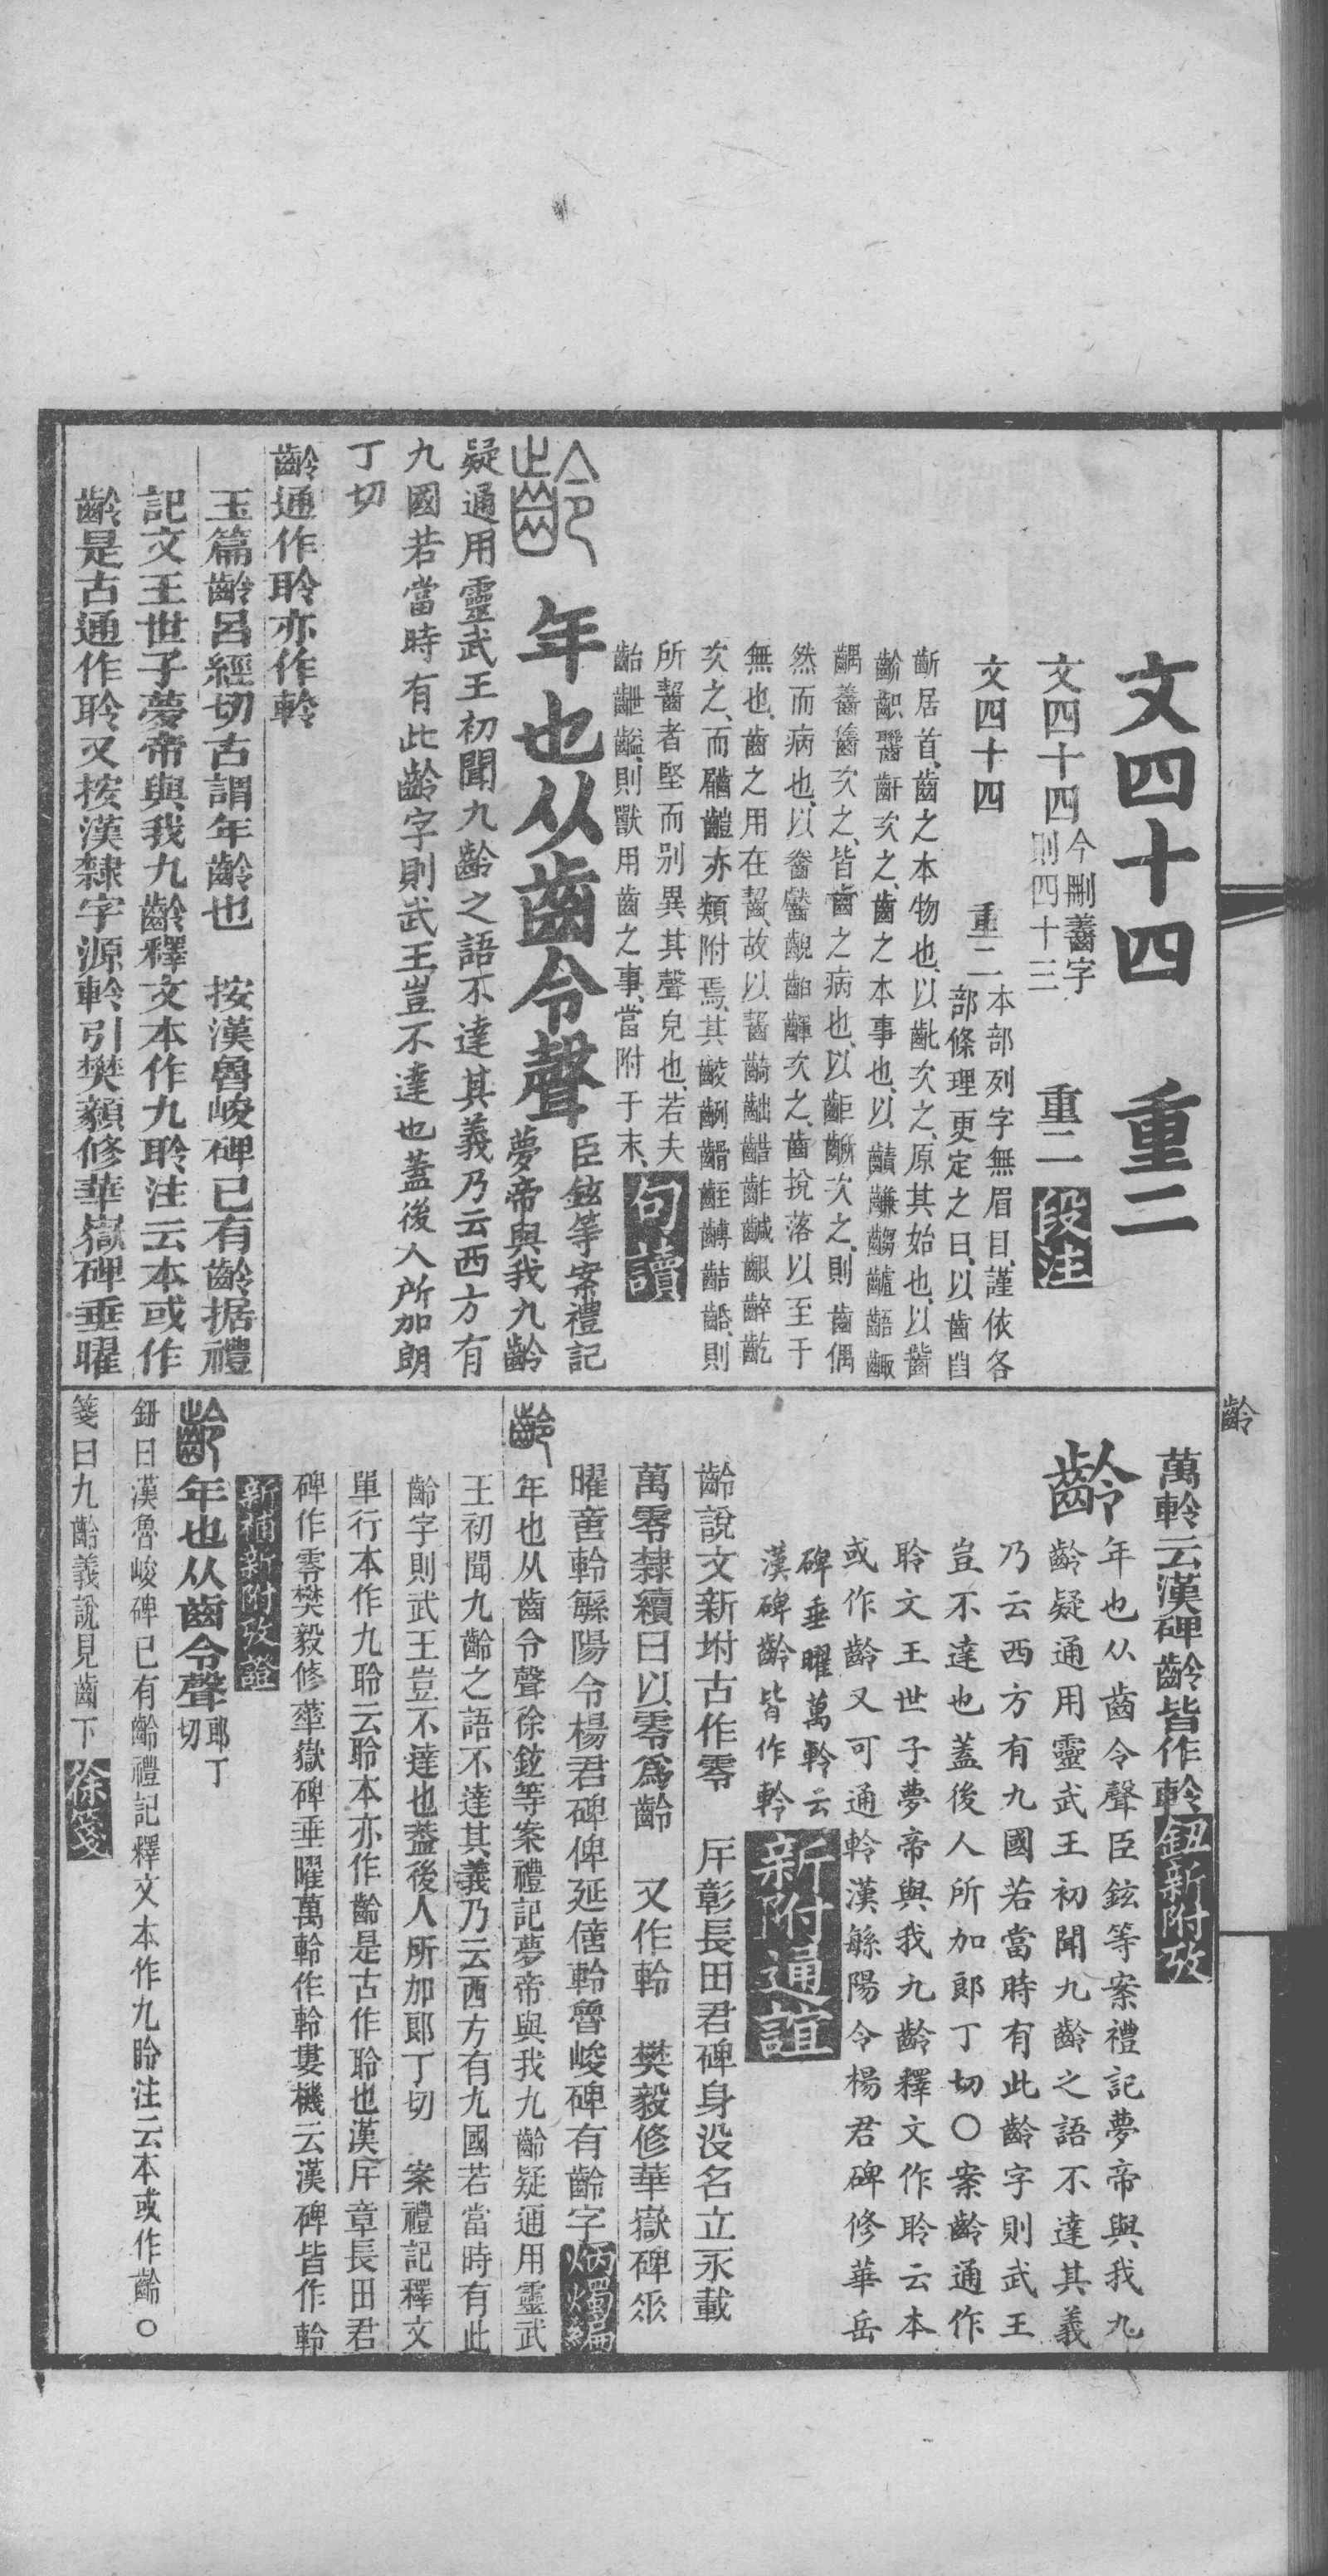 文四十四　重二
文四十四今刪𪘲字
則四十三　重二段注
文四十四　重二本部列字無眉目、謹依各
部條理更定之曰、以齒自
齗居首、齒之本物也、以齔次之、原其始也、以
次之、齒之本事也、以
次之、皆齒之病也、以　次之、則齒偶
然而病也、以　次之、齒挩落以至于
無也、齒之用在齧、故以齧
次之、而　亦類附焉、其　則
所齧者堅而別異其聲皃也、若夫
齝齛齸、則獸用齒之事、當附于末、句讀
齡
年也从齒令聲臣鉉等案禮記
夢帝與我九齡
疑通用靈武王初聞九齡之語不達其義乃云西方有
九國若當時有此齡字則武王豈不達也蓋後人所加朗
丁切
齡通作聆亦作軨
玉篇齡呂經切古謂年齡也　按漢魯峻碑已有齡据禮
記文王世子夢帝與我九齡釋文本作九聆注云本或作
齡是古通作聆又按漢隸字源軨引樊毅修華嶽碑垂曜
萬軨云漢碑齡皆作軨鈕新附攷
齡年也从齒令聲臣鉉等案禮記夢帝與我九
齡疑通用靈武王初聞九齡之語不達其義
乃云西方有九國若當時有此齡字則武王
豈不達也蓋後人所加郎丁切〇案齡通作
聆文王世子夢帝與我九齡釋文作聆云本
或作齡又可通軨漢緐陽令楊君碑修華岳
碑垂曜萬軨云
漢碑齡皆作軨新附通誼
齡說文新坿古作零　斥彰長田君碑身没名立永載
萬零隸續曰以零爲齡　又作軨　樊毅修華嶽碑𠂢
曜萬軨緐陽令楊君碑俾延僖軨魯峻碑有齡字炳燭編
齡年也从齒令聲徐鉉等案禮記夢帝與我九齡疑通用靈武
王初聞九齡之語不達其義乃云西方有九國若當時有此
齡字則武王豈不達也葢後人所加郎丁切　案禮記釋文
單行本作九聆云聆本亦作齡是古作聆也漢斥章長田君
碑作零樊毅修華嶽碑垂曜萬軨作軨婁機云漢碑皆作軨
新補新附攷證
齡年也从齒令聲郎丁
切
鈕曰漢魯峻碑已有齡禮記釋文本作九聆注云本或作齡〇
箋曰九齡義說見齒下徐箋
齡